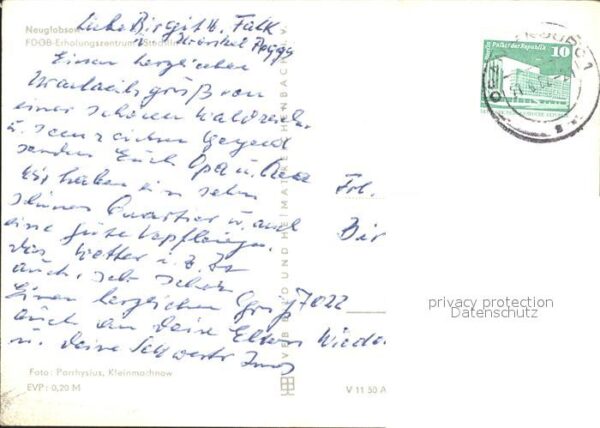 Neuglobsow
FDGB-Erholungszentrum "Stechlin"
Liebe Birgit u. Falk
u. Peggy
Einen herzlichen
Urlaubsgruß von
einer schönen waldreich.
u. seenreichen Gegend
senden Euch Opa u. Oma
Wir haben ein sehr
schönes Quartier u. auch
eine gute Verpflegung.
Das Wetter i. z. Zt
auch sehr schön
Einen herzlichen Gruß
auch an Deine Eltern
u. Deine Schwester
Foto: Parthysius, Kleinmachnow
EVP: 0,20 M
VEB BILD UND HEIMAT REICHENBACH
V 11 50 A
Berlin Palast der Republik 10
Frl.
Bir
7022
Wiede
privacy protection
Datenschutz